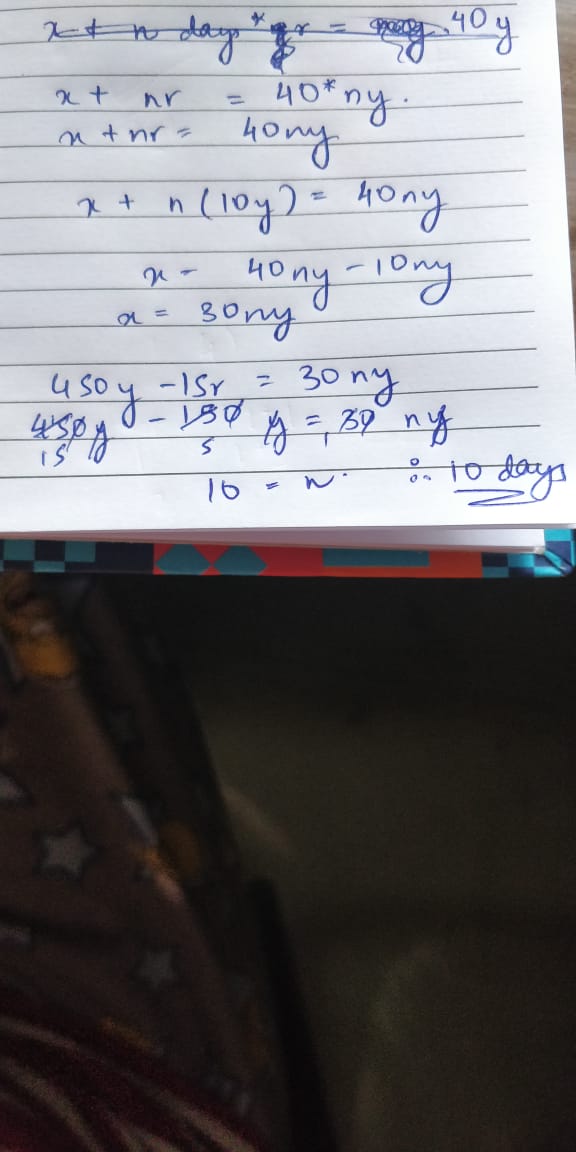 x + n days * r = 40y
x + nr = 40*ny.
x + nr = 40ny
x + n(10y) = 40ny
x - 40ny - 10ny
x = 30ny
450y - 15r = 30ny
450y - 150y = 30 ny
15 5 1
10 = n. ∴ 10 days